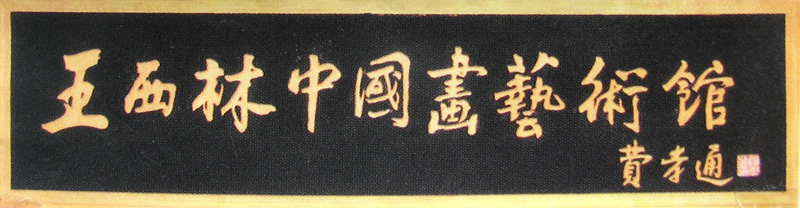 王西林中國畫藝術館
費孝通